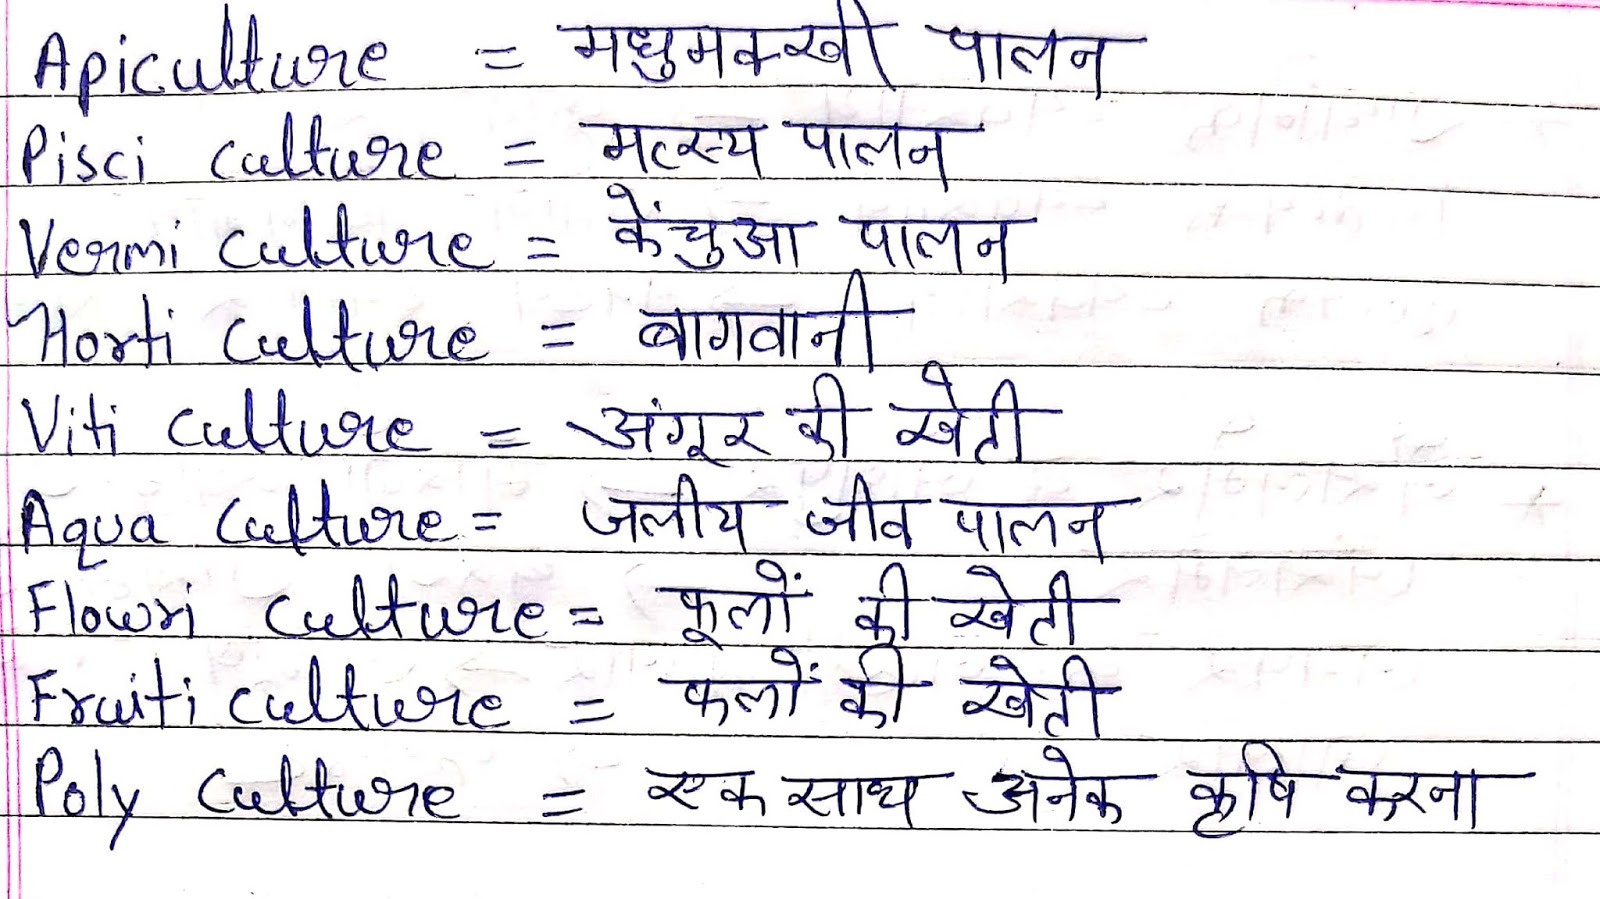 Apiculture = मधुमक्खी पालन
Pisci culture = मत्स्य पालन
Vermi culture = केंचुआ पालन
Horti culture = बागवानी
Viti culture = अंगूर की खेती
Aqua culture = जलीय जीव पालन
Flowri culture = फूलों की खेती
Fruiti culture = फलों की खेती
Poly culture = एक साथ अनेक कृषि करना